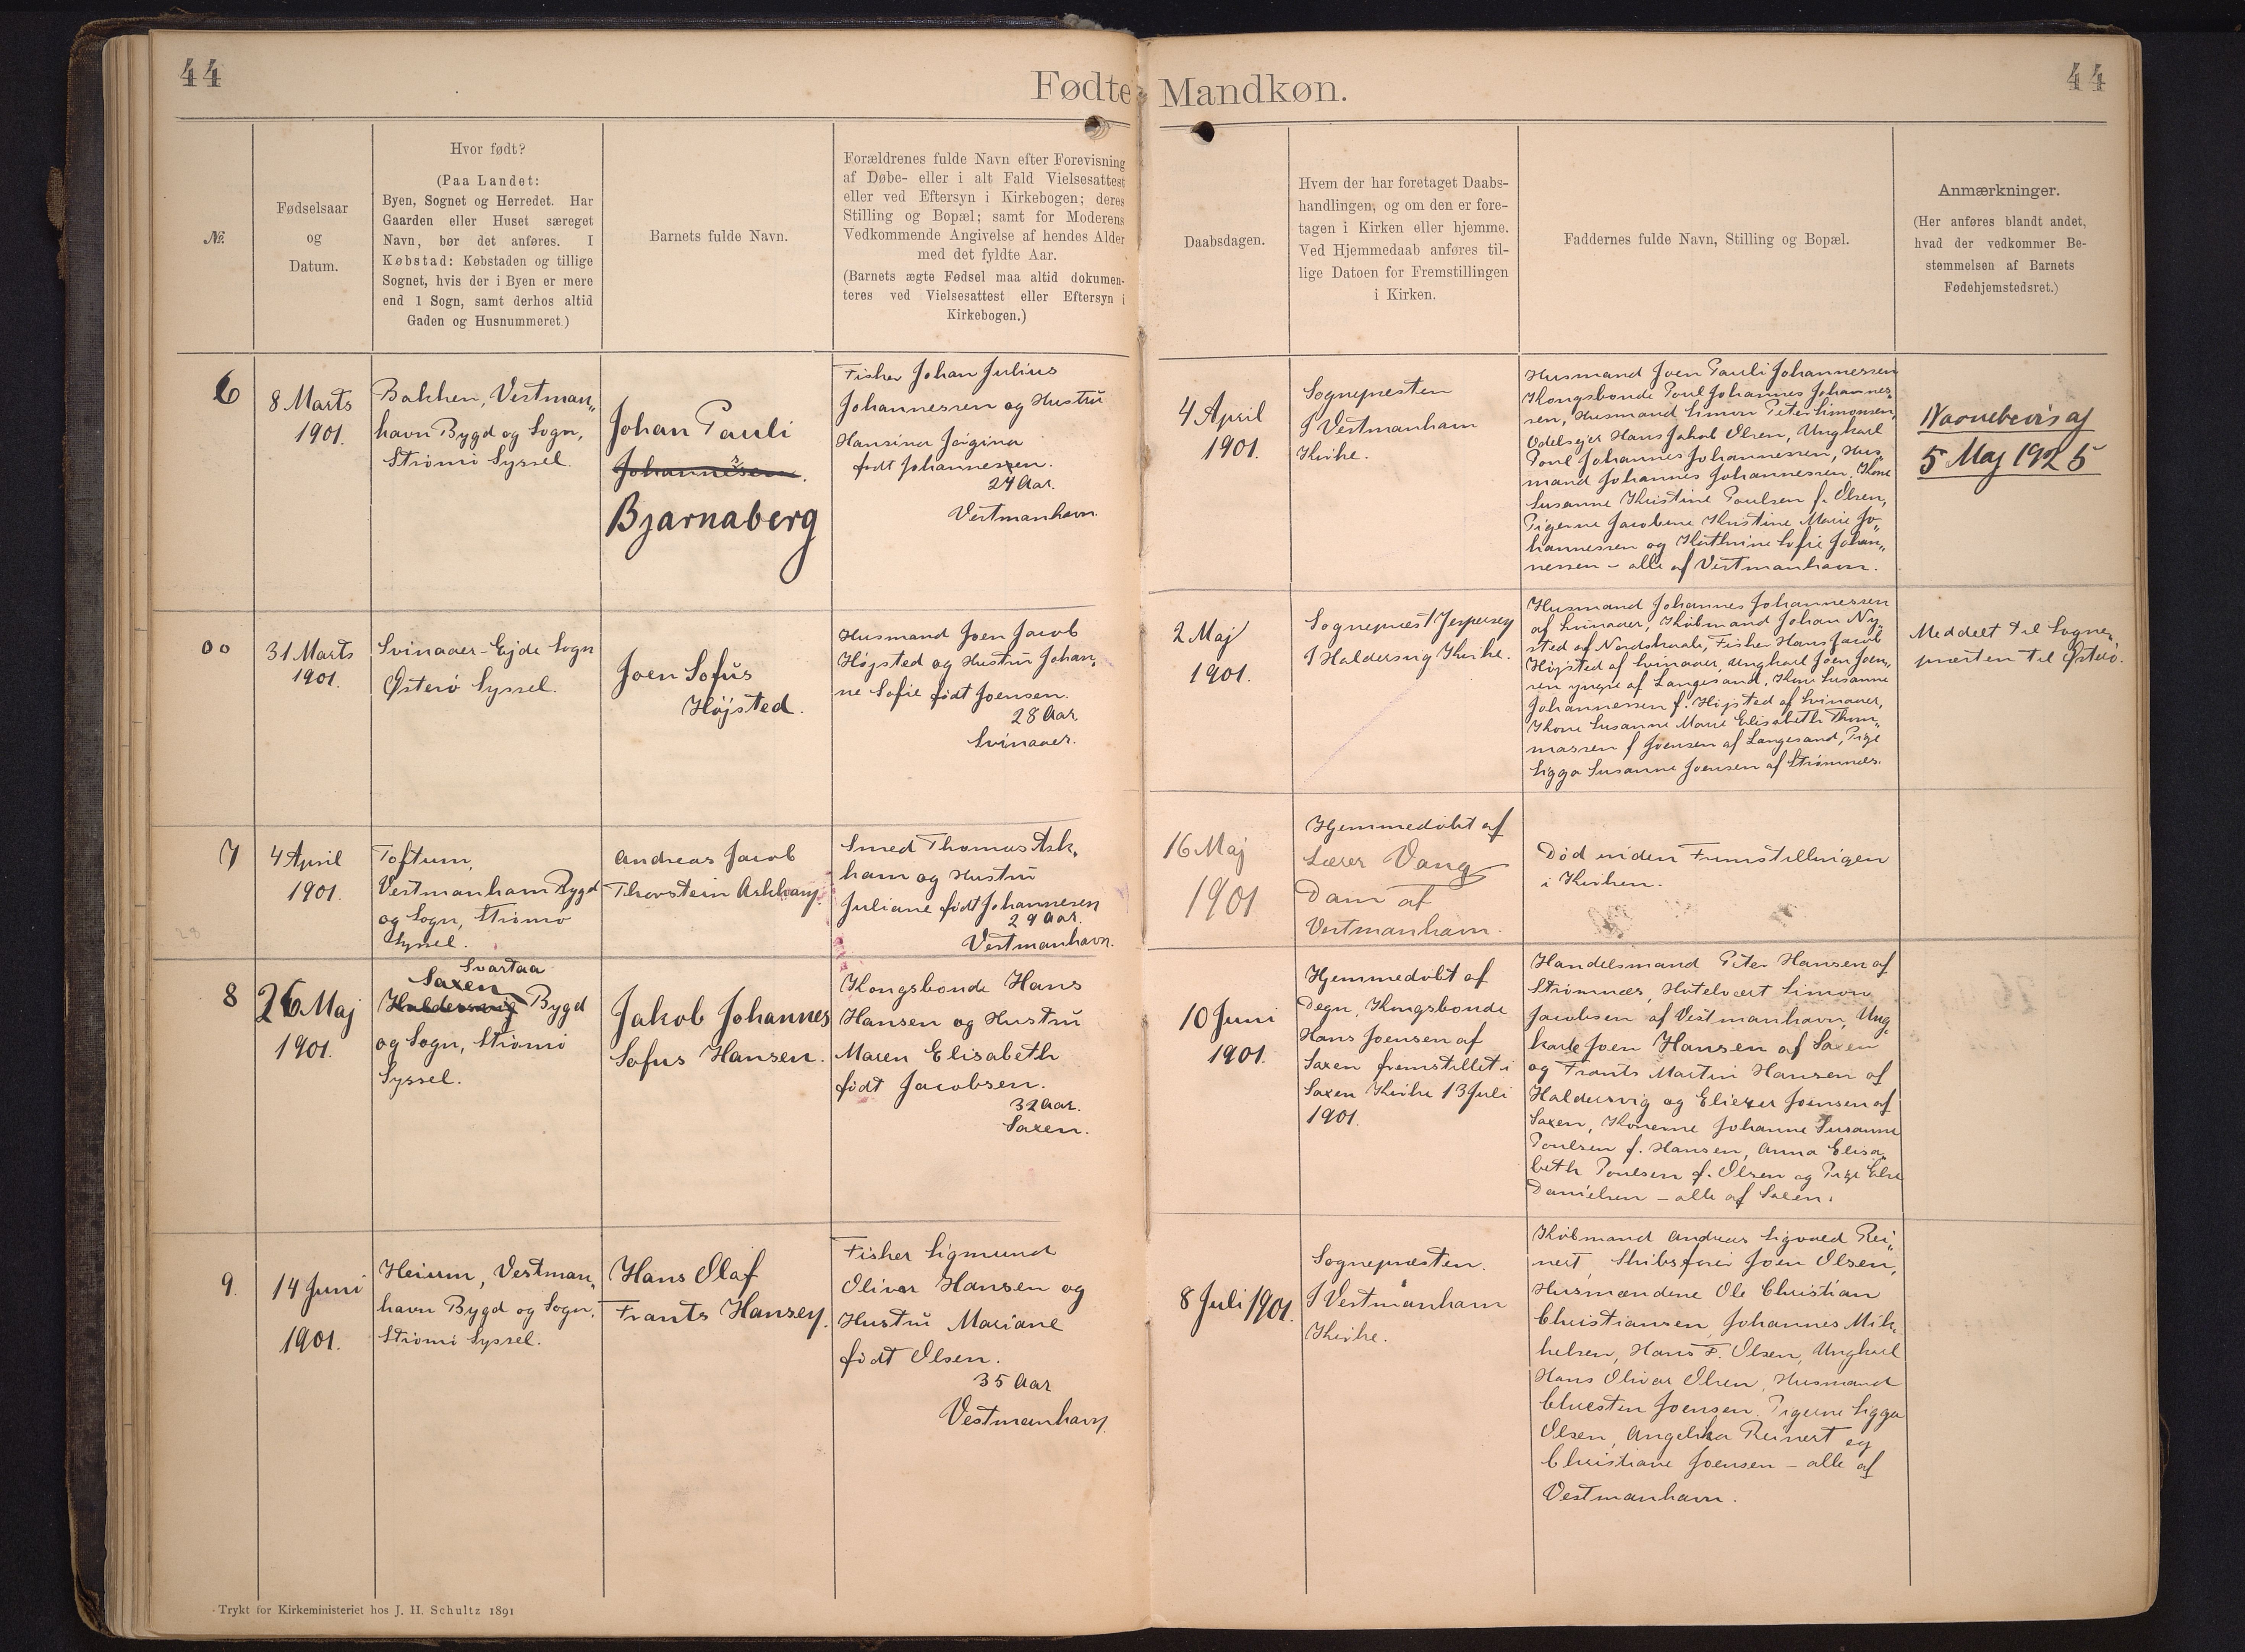 44
Fødte Mandkøn.
44
№.
Fødselsaar
og
Datum.
Hvor født?
(Paa Landet:
Byen, Sognet og Herredet. Har
Gaarden eller Huset særeget
Navn, bør det anføres. I
Købstad: Købstaden og tillige
Sognet, hvis der i Byen er mere
end 1 Sogn, samt derhos altid
Gaden og Husnummeret.)
Barnets fulde Navn.
Forældrenes fulde Navn efter Forevisning
af Døbe- eller i alt Fald Vielsesattest
eller ved Eftersyn i Kirkebogen; deres
Stilling og Bopæl; samt for Moderens
Vedkommende Angivelse af hendes Alder
med det fyldte Aar.
(Barnets ægte Fødsel maa altid dokumen-
teres ved Vielsesattest eller Eftersyn i
Kirkebogen.)
Daabsdagen.
Hvem der har foretaget Daabs-
handlingen, og om den er fore-
tagen i Kirken eller hjemme.
Ved Hjemmedaab anføres til-
lige Datoen for Fremstillingen
i Kirken.
Faddernes fulde Navn, Stilling og Bopæl.
Anmærkninger.
(Her anføres blandt andet,
hvad der vedkommer Be-
stemmelsen af Barnets
Fødehjemstedsret.)
6
8 Marts
1901.
Bakken, Vestman„
havn Bygd og Sogn,
Strömö Syssel.
Johan Pauli
Johannesen.
Bjarnaberg
Fisker Johan Julius
Johannessen og Hustru
Hansina Jögina
født Johannessen.
27 Aar.
Vestmanhavn.
4 April
1901.
Sognepresten
I Vestmanham
Kirke.
Husmand Joen Pauli Johannessen
Kongsbonde Poul Johannes Johannes„
sen, Husmand Simon Peter Simonsen,
Odelsejer Hans Jakob Olsen, Ungkarl
Poul Johannes Johannessen, Hus„
mand Johannes Johannessen, Kone
Susanne Kristine Poulsen f. Olsen,
Pigerne Jacobine Kristine Marie Jo„
hannessen og Kathrine Sofie Johan„
nessen – alle af Vestmanhavn.
Navnebevis af
5 Maj 1925
00
31 Marts
1901.
Svinaaer - Ejde Sogn
Østerø Syssel.
Joen Sofus
Højsted.
Husmand Joen Jacob
Højsted og Hustru Johan„
ne Sofie født Joensen.
28 Aar.
Svinaaer.
2 Maj
1901.
Sognepræst Jespersen
I Haldersvig Kirke.
Husmand Johannes Johannessen
af Svinaaer, Købmand Johan Ny„
sted af Nordskaale, Fisker Hans Jacob
Højsted af Svinaaer, Ungkarl Joen Joen„
sen yngre af Langesand, Kone Susanne
Johannessen f. Højsted af Svinaaer,
Kone Susanne Marie Elisabeth Thom„
massen f Joensen af Langesand, Pige
Sigga Susanne Joensen af Strömnæs.
Meddelt til Sogne„
præsten til Østerö.
7
4 April
1901.
Toftum,
Vestmanham Bygd
og Sogn, Strömö
Syssel.
Andreas Jacob
Thorstein Askham.
Smed Thomas Ask„
ham og Hustru
Juliane født Johannesen
29 Aar.
Vestmanhavn.
16 Maj
1901
Hjemmedøbt af
Lærer Vang
Dam af
Vestmanhavn.
Død inden Fremstillingen
i Kirken.
8
26 Maj
1901.
Svartaa
Saxen
Haldersvig Bygd
og Sogn, Strömö
Syssel.
Jakob Johannes
Sofus Hansen.
Kongsbonde Hans
Hansen og Hustru
Maren Elisabeth
født Jacobsen.
32 Aar.
Saxen.
10 Juni
1901.
Hjemmedøbt af
Degn, Kongsbonde
Hans Joensen af
Saxen fremstillet i
Saxen Kirke 13 Juli
1901.
Handelsmand Peter Hansen af
Strömnæs, Hotelvært Simon
Jacobsen af Vestmanhavn, Ung
karle Joen Hansen af Saxen
og Frants Martin Hansen af
Haldersvig og Eliezer Joensen af
Saxen, Konerne Johanne Susanne
Poulsen f. Hansen, Anna Elisa„
beth Poulsen f. Olsen og Pige Else
Danielsen – alle af Saxen.
9.
14 Juni
1901.
Heium, Vestman„
havn Bygd og Sogn,
Strömö Syssel.
Hans Olaf
Frants Hansen.
Fisker Sigmund
Olivar Hansen og
Hustru Mariane
født Olsen.
35 Aar
Vestmanhavn.
8 Juli 1901.
Sognepræsten.
I Vestmanham
Kirke.
Købmand Andreas Sigvald Rei„
nert, Skibsfører Joen Olsen,
Husmændene Ole Christian
Christiansen, Johannes Mik„
kelsen, Hans F. Olsen, Ungkarl
Hans Olivar Olsen, Husmand
Chresten Joensen. Pigerne Sigga
Olsen, Angelika Reinert og
Christiane Joensen – alle af
Vestmanhavn.
Trykt for Kirkeministeriet hos J. H. Schultz 1891